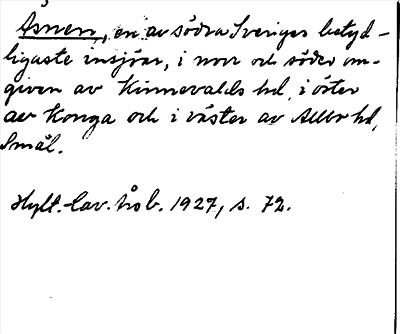 Åsnen, en av södra Sveriges betyd-
ligaste insjöar, i norr och söder om-
given av Kinnevalds hd, i öster
av Konga och i väster av Allbo hd,
Smål.
Hylt.-Cav. årsb. 1927, s. 72.